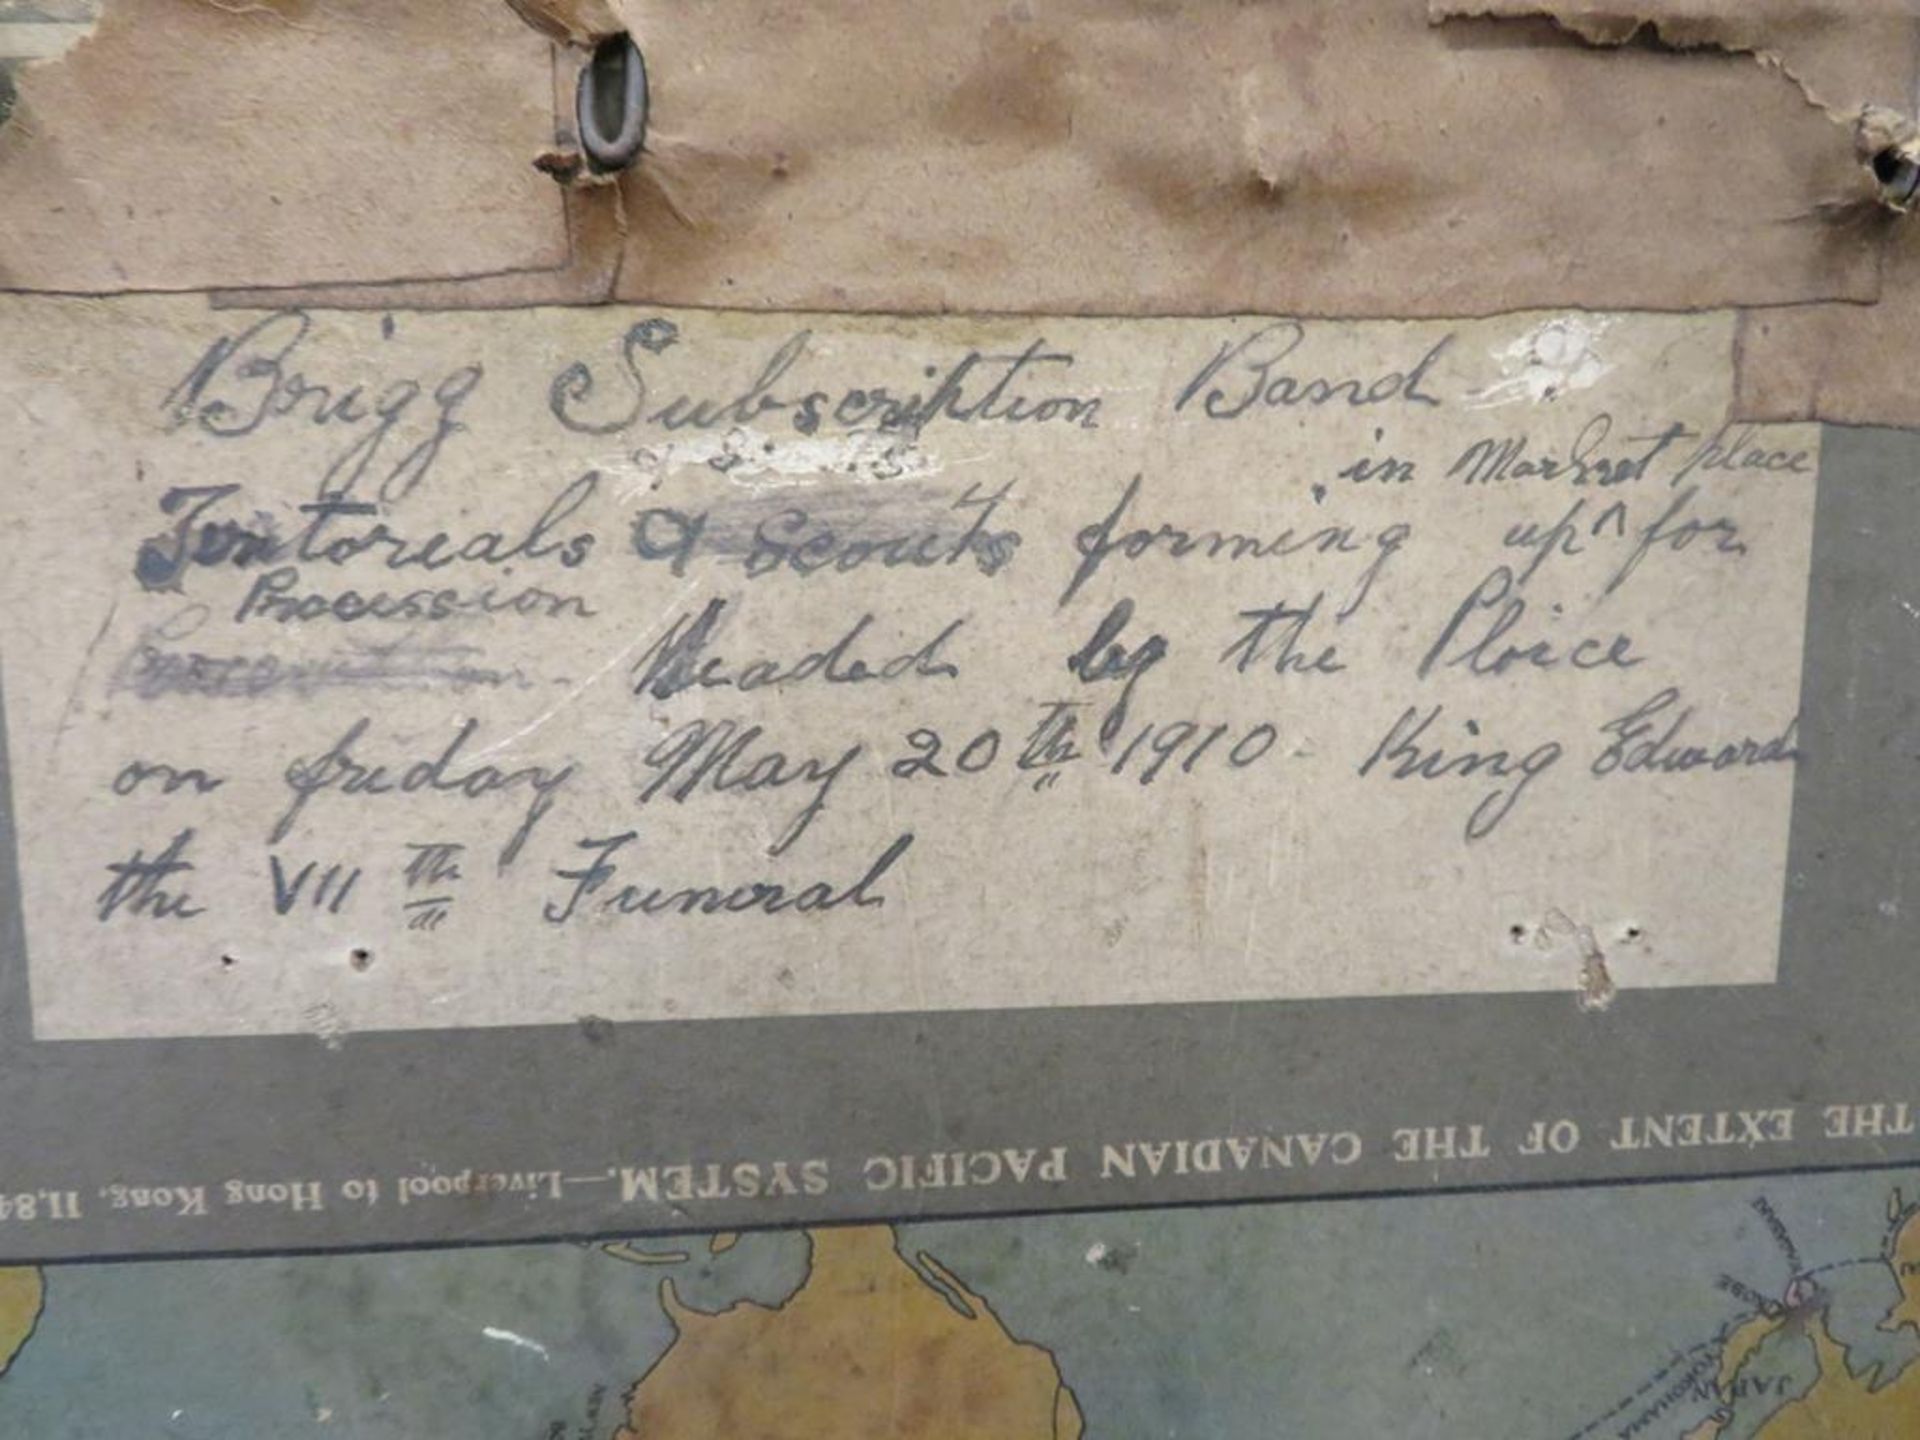 Brigg Subscription Band
in Market place
Tentoreals & Scouts forming up ^ for
Procession
Headed by the Ploice
on friday May 20th 1910 - King Edward
the VII th Funeral
THE EXTENT OF THE CANADIAN PACIFIC SYSTEM.—Liverpool to Hong Kong, 11,84
KOBE
YOKOHAMA
JAPAN